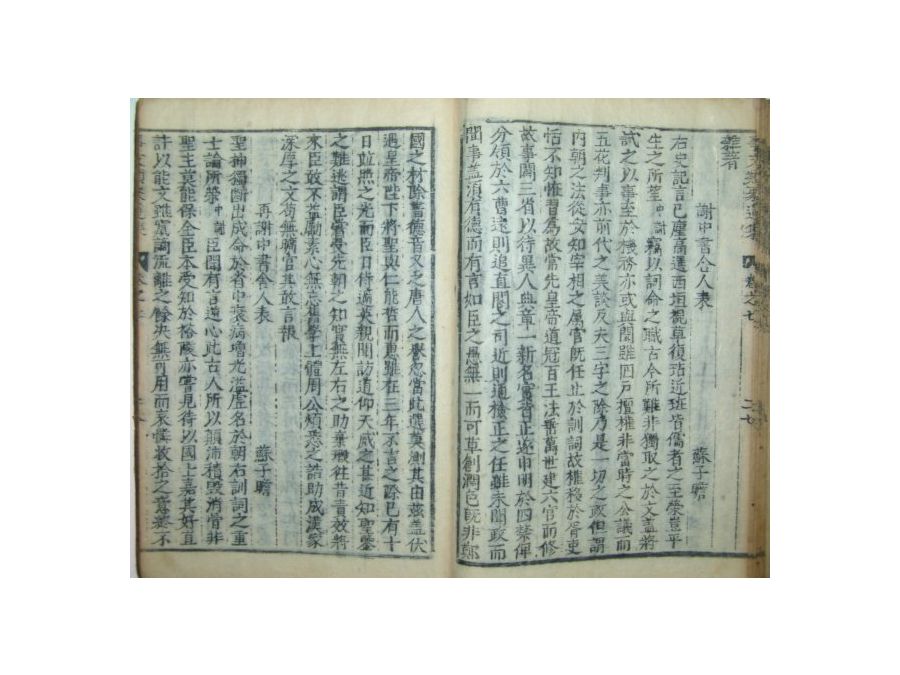 雜著
謝中書舍人表　蘇子瞻
右史記言已塵高選西垣視草復玷近班皆儒者之至榮豈平
生之所望中謝竊以詞命之職古今所難非獨取之於文盖將
試之以事至於機務亦或與聞雖四戶擅權非當時之公議而
五花判事亦前代之美談及夫三字之除乃是一切之政但謂
內朝之法從安知宰相之属官旣任止於訓詞故權移於胥吏
恬不知恠習爲故常先皇帝道冠百王法垂萬世建六官而修
故事闢三省以待異人典章一新名實皆正逐申明於四禁俾
分領於六曹遠則追直閤之司近則通檢正之任雖未聞政而
間事盖須有德而有言如臣之愚無一而可草創潤色旣非鄭
國之材除書德音又乏唐人之譽忽當此選莫測其由玆盖伏
遇皇帝陛下將聖與仁能哲而惠雖在三年不言之際已有十
日並照之光而臣力侍邇英親聞訪道仰天威之甚近知聖學
之難逃謂臣嘗受先朝之知實無左右之助棄瑕往昔責效將
來臣敢不益勵素心無忘舊學上體周公煩悉之誥助成漢家
深厚之文苟無曠官其敢言報
再謝中書舍人表　蘇子瞻
聖神獨斷出成命於省中衰病增光濫虛名於朝右訓詞之重
士論所榮中謝臣聞有言逆心此古人所以顚沛積毁消骨非
聖主莫能保全臣本受知於裕陵亦嘗見待以國士嘉其好直
許以能文雖竄謫流離之餘決無可用而哀憐收拾之意終不